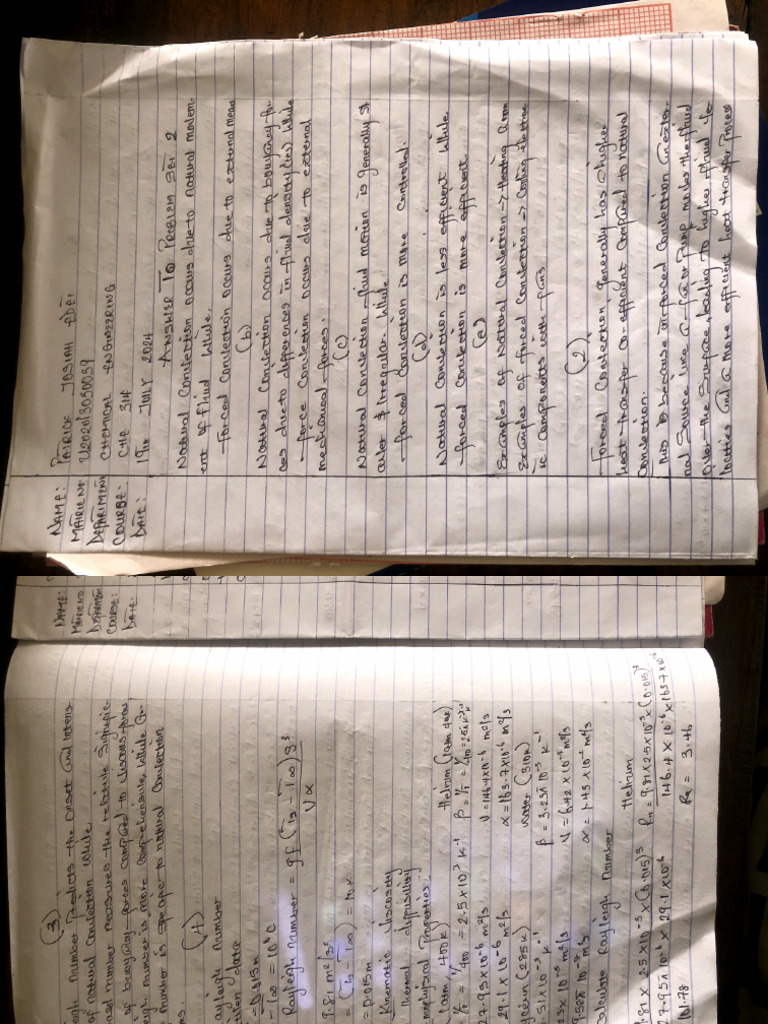 NAME: PATRICK JOSIAH EDET
MATRIC NO U2020/3050039
DEPARTMENT CHEMICAL ENGINEERING
COURSE: CHE 314
DATE: JULY 2024
ANSWER TO PROBLEM SET 2
Natural Convection occurs due to natural movem-
ent of fluid while.
Forced Convection occurs due to external means
(b)
Natural Convection occurs due to bouyancy-for-
ces due to differences in fluid density(ies) while
force Convection occurs due to external
mechanical forces.
(c)
Natural Convection fluid motion is generally sl
& Irregular while
forced Convection is more controlled.
(d)
Natural Convection is less efficient while
forced Convection is more efficient
(e)
Examples of Natural Convection → Heating a room
Examples of forced Convection → Cooling electron-
ic Components with fans
(2)
Forced Convection generally has a higher
heat transfer co-efficient compared to natural
Convection.
This is because in forced Convection an exter-
nal source like a fan or pump moves the fluid
over the surface, leading to higher fluid ve-
locities and a more efficient heat transfer process
NAME:
MATRIC NO
DEPARTMEN
COURSE:
DATE:
(3)
number Predicts the onset and intens
of natural convection while
number measures the relative signific-
of bouyancy forces compared to viscous forces
number is more comprehensive, while G
number is specific to natural Convection
ms.
(4)
ayleigh number
data
= 0.015m
- T∞ = 10°C
Rayleigh number = gβ(Ts - T∞)δ³
να
9.81 m/s²
= (Ts - T∞) = 10K
= 0.015m
Kinematic Viscosity
Thermal diffusivity
mophysical Properties
1 atm, 400K) Helium (1 atm 400K)
1/400 = 2.5 x 10⁻³ K⁻¹ β = 1/T = 1/400 = 2.5x10⁻³K⁻¹
27.95 x 10⁻⁶ m²/s ν = 146.4 x 10⁻⁶ m²/s
29.1 x 10⁻⁶ m²/s α = 163.7 x 10⁻⁶ m²/s
(285K) Water (310K)
51 x 10⁻³ K⁻¹ β = 3.23 x 10⁻³ K⁻¹
m²/s ν = 6.42 x m²/s
m²/s α = 1.43 x m²/s
Calculate Rayleigh number
Helium
.81 x 2.5 x 10⁻³ x (0.015)³ Ra = 9.81 x 2.5 x 10⁻³ x (0.015)³
27.95 x 10⁻⁶ x 29.1 x 10⁻⁶ 146.4 x 10⁻⁶ x 163.7 x 10⁻⁶
101.78 Ra = 3.46